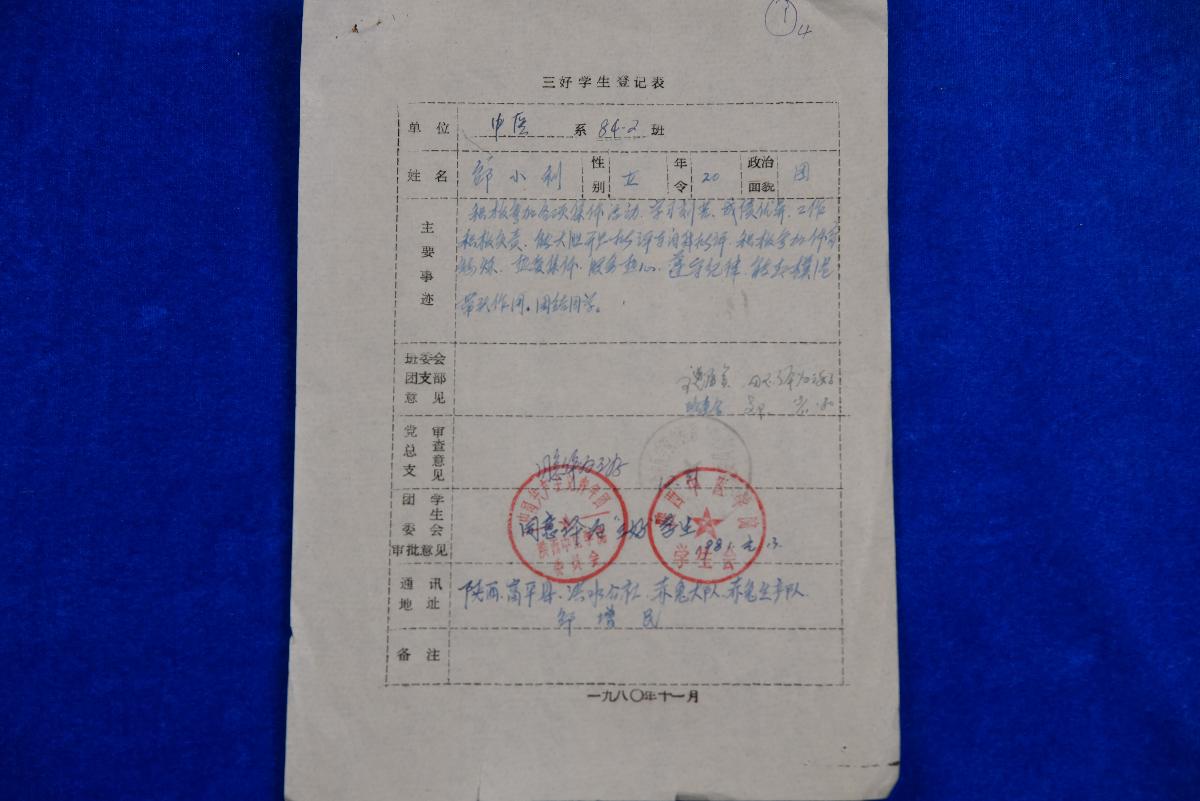 4
三好学生登记表
单位 中医 系 84-2 班
姓名 小利 性别 女 年令 20 政治面貌 团
主要事迹
积极参加各项集体活动、学习刻苦、成绩优异、工作
积极负责、能大胆开展批评与自我批评、积极参加体育
锻炼、热爱集体、服务热心、遵守纪律、能起模范
带头作用。团结同学。
班委会
团支部
意见
党总支审查意见
同意评为三好
团委会学生会
审批意见
同意评为"三好"学生
1981.
中国共产主义青年团
陕西中医学院
委员会
陕西中医学院
学生会
通讯地址
陕西、富平县、洪水公社、赤兔大队、赤兔生产队
增民
备注
一九八〇年十一月